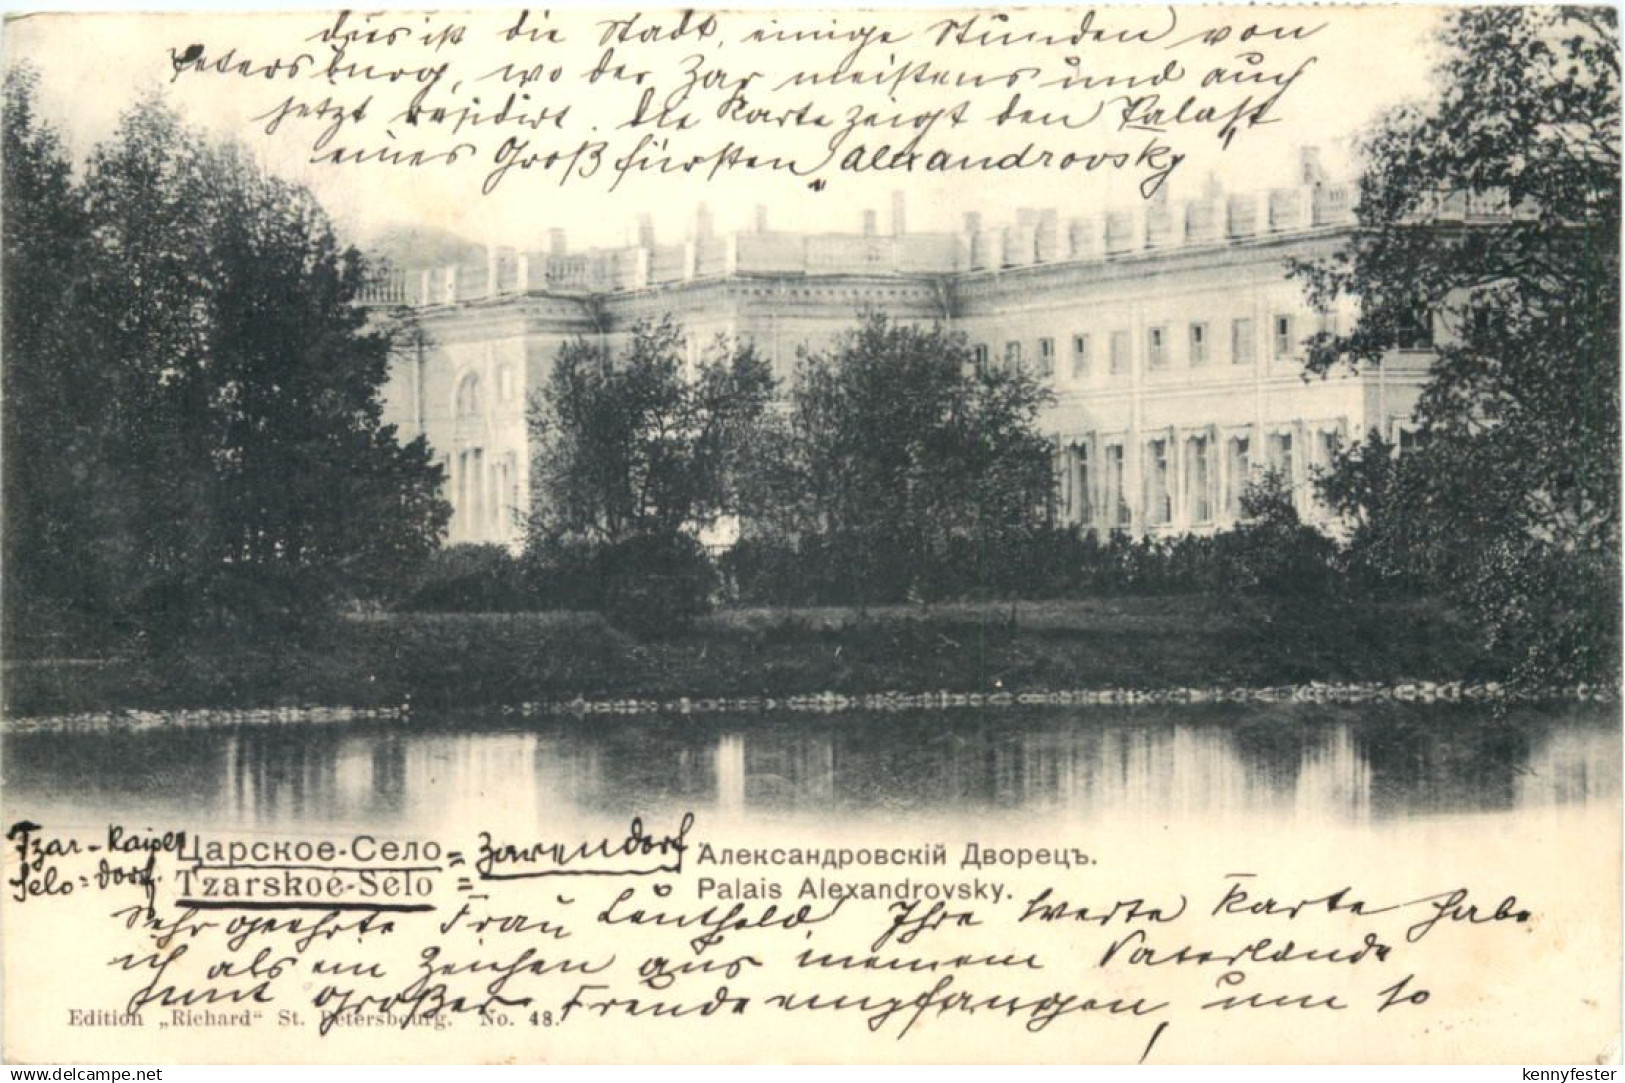 dies ist die Stadt, einige Stunden von
Petersburg, wo der Zar meistens und auch
jetzt residirt. Die Karte zeigt den Palast
eines Großfürsten „Alexandrovsky"
Tzar - Kaiser
Selo = dorf.
Царское-Село = Zarendorf.
Tzarskoé-Sélo =
Александровскій Дворецъ.
Palais Alexandrovsky.
Sehr geehrte Frau Leuthold! Ihre werte Karte habe
ich als ein Zeichen aus meinem Vaterlande
mit großer Freude empfangen, um so
Edition „Richard" St. Petersbourg. No. 48.
delcampe.net
kennyfester